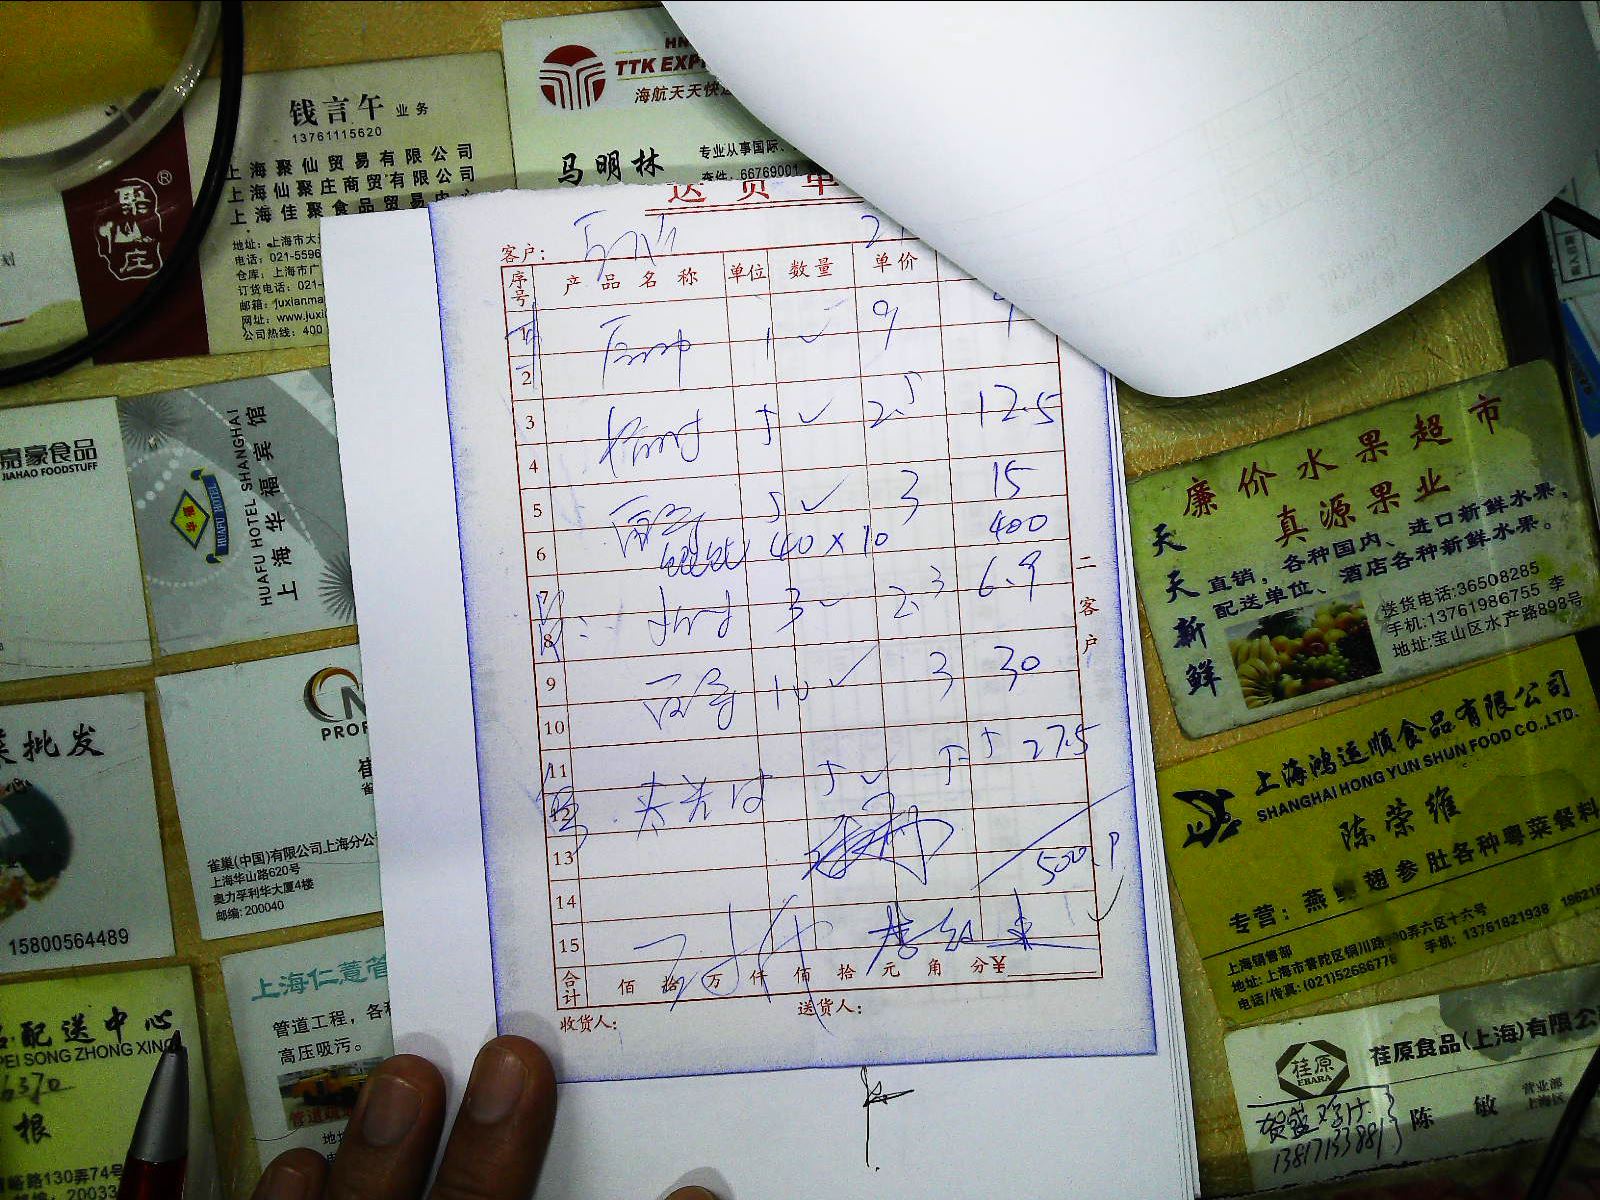 钱言午 业务
13761115620
上海聚仙贸易有限公司
上海仙聚庄商贸有限公司
上海佳聚食品贸易中心
地址：上海市大
电话：021-5596
仓库：上海市广
订货电话：021-
邮箱：juxianma
网址：www.juxi
公司热线：400
聚仙庄®
HN
TTK EXP
海航天天快
马明林
专业从事国际、
查件：66769001
送货单
客户：
序号 产品名称 单位 数量 单价
1 1 9 9
2
3 5 2.5 12.5
4
5 5 3 15
6 40×10 400
7 3 2.3 6.9
8
9 10 3 30
10
11 5 5.5 27.5
12
13
14
15
合计 佰 拾 万 仟 佰 拾 元 角 分¥
收货人： 送货人：
二客户
嘉豪食品
JIAHAO FOODSTUFF
华福
HUAFU HOTEL
HUAFU HOTEL SHANGHAI
上海华福宾馆
批发
15800564489
PROF
崔
雀巢(中国)有限公司上海分公
上海华山路620号
奥力孚利华大厦4楼
邮编：200040
上海仁薏管
管道工程，各
高压吸污。
配送中心
PEI SONG ZHONG XIN
6370
根
峪路130弄74号
邮编：20033
廉价水果超市
真源果业
天天新鲜
直销，各种国内、进口新鲜水果，
配送单位、酒店各种新鲜水果。
送货电话:36508285
手机:13761986755 李
地址:宝山区水产路898号
上海鸿运顺食品有限公司
SHANGHAI HONG YUN SHUN FOOD CO.,LTD.
陈荣维
专营：燕 翅参肚各种粤菜餐料
上海销售部
地址：上海市普陀区铜川路 弄六区十六号
电话/传真：(021)52686776 手机：13761821938
荏原
EBARA
荏原食品(上海)有限公
陈敏
营业部
上海区
13817133881